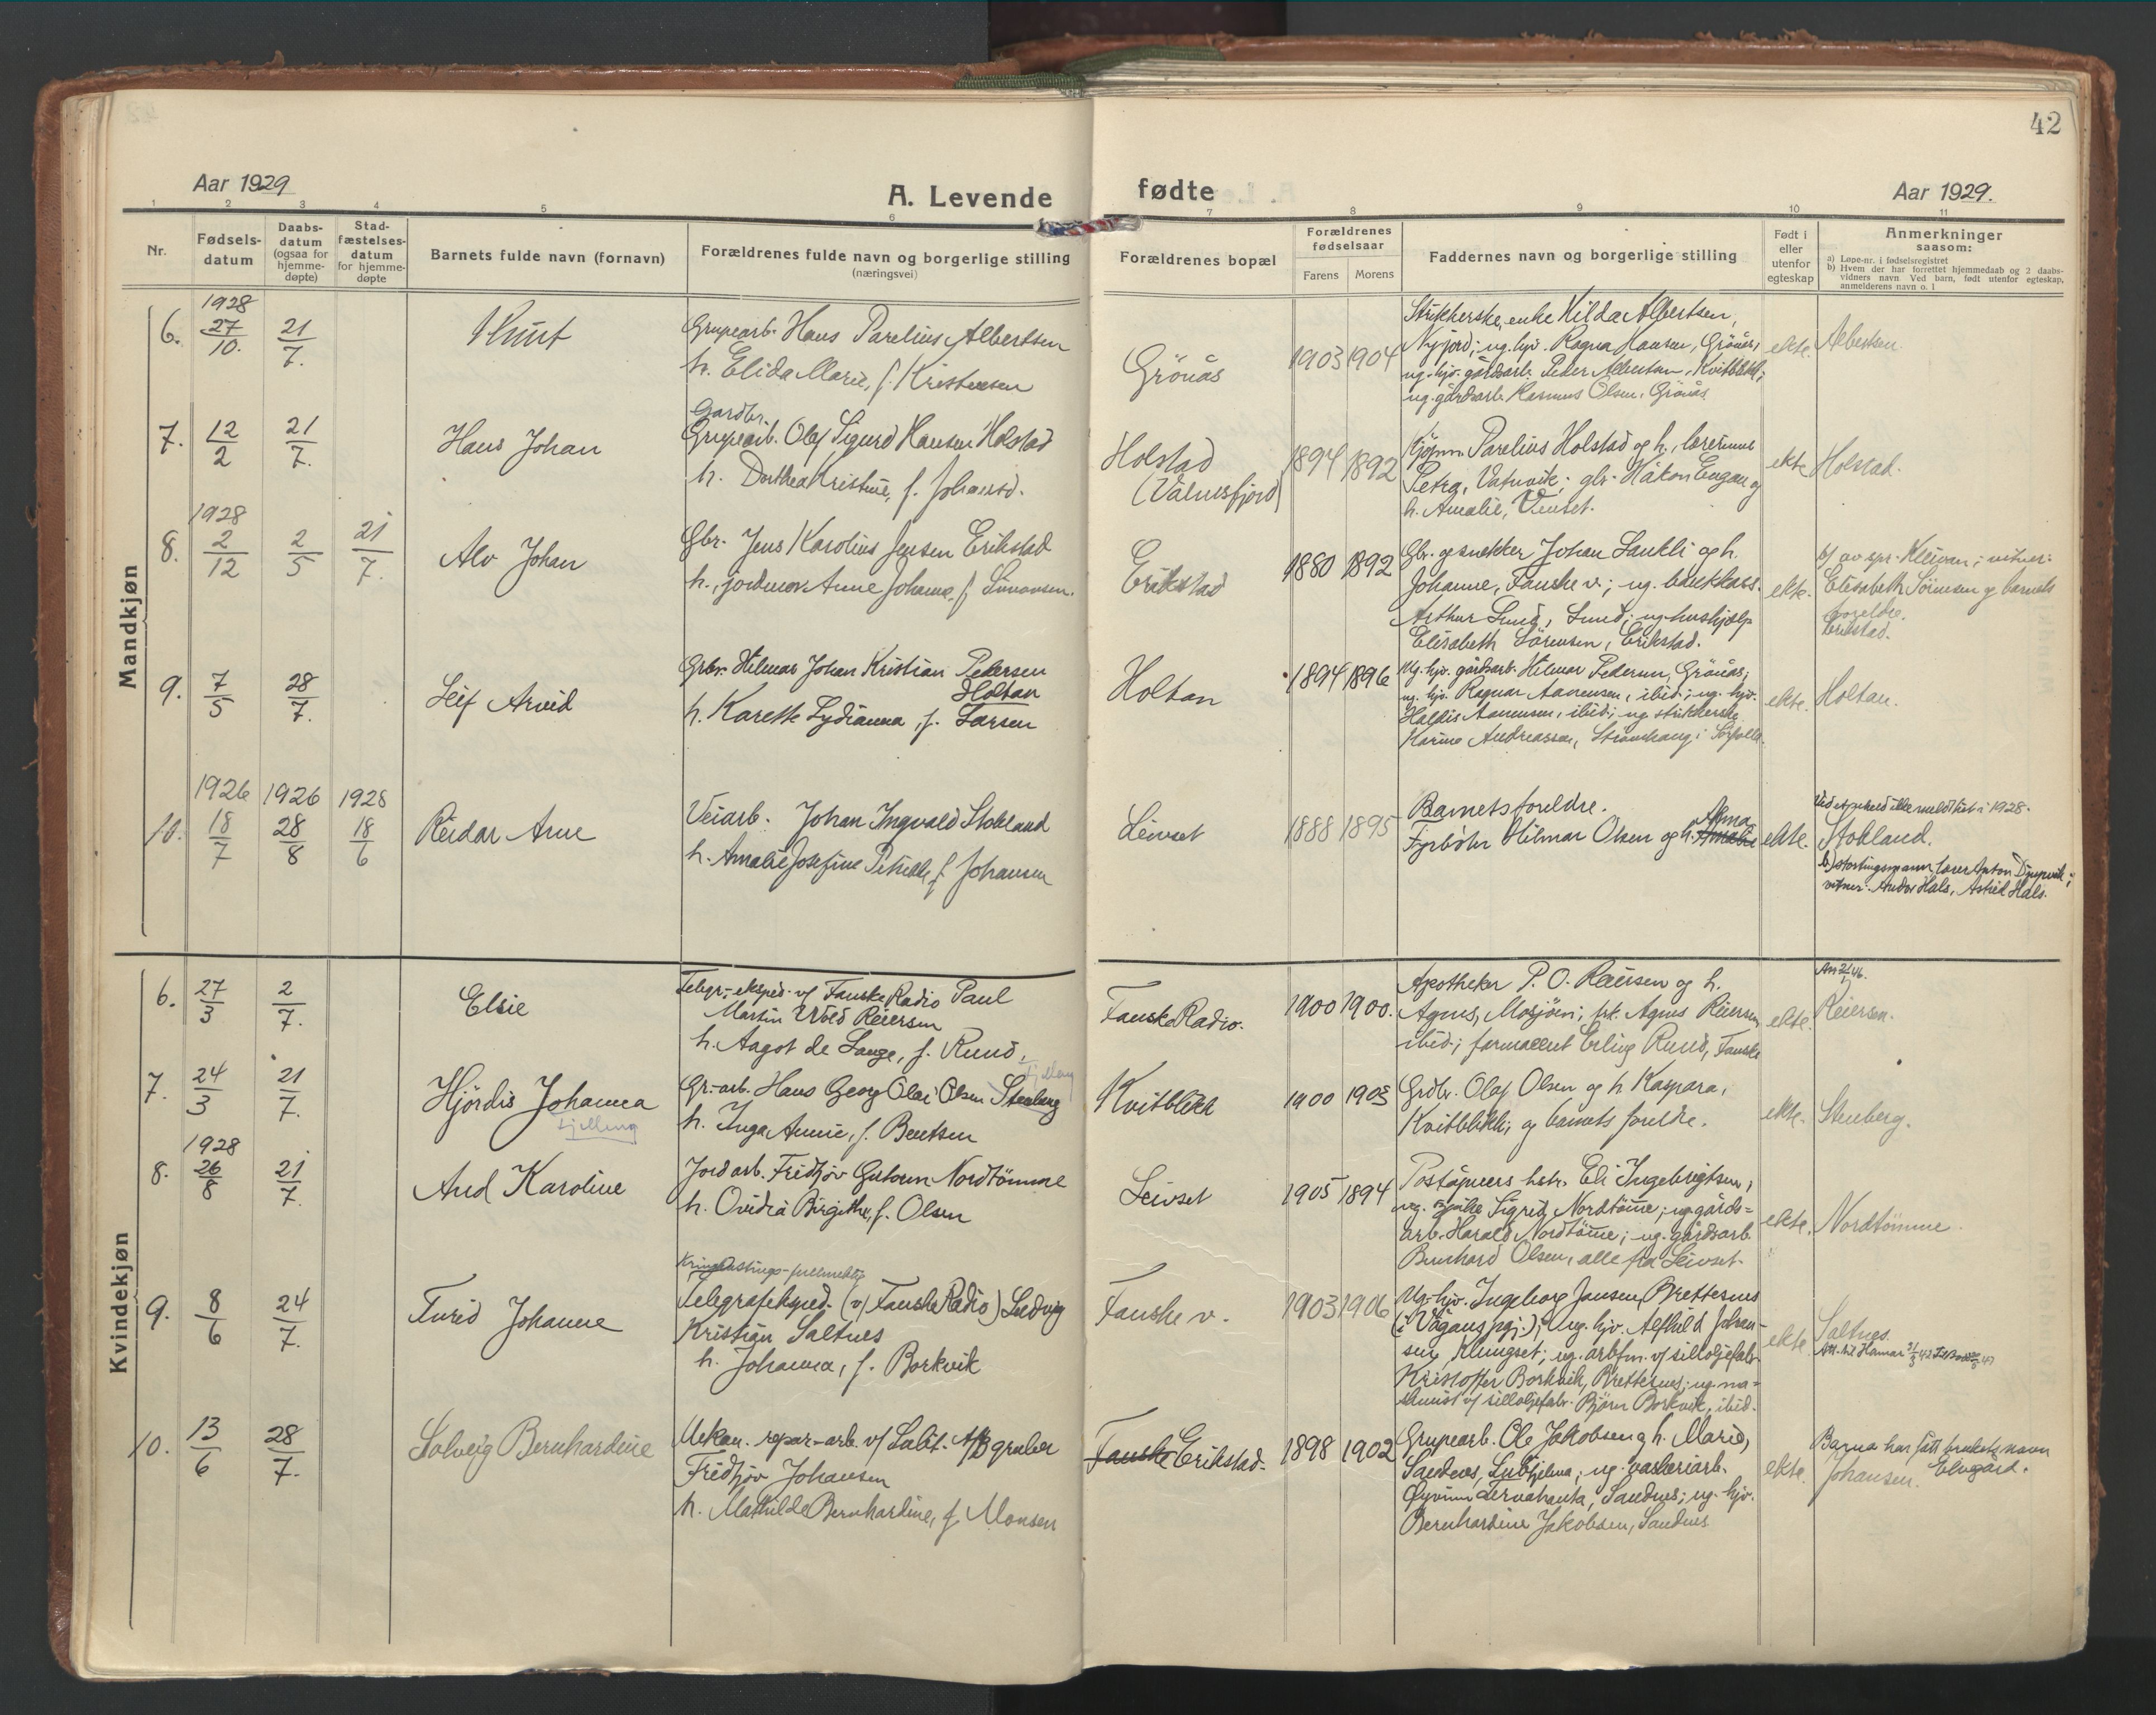 42
Aar 1929
A. Levende
fødte
Aar 1929.
1 2 3 4 5 6 7 8 9 10 11
Nr.
Fødsels-
datum
Daabs-
datum
(ogsaa for
hjemme-
døpte)
Stad-
fæstelses-
datum
for hjemme-
døpte
Barnets fulde navn (fornavn)
Forældrenes fulde navn og borgerlige stilling
(næringsvei)
Forældrenes bopæl
Forældrenes
fødselsaar
Farens
Morens
Faddernes navn og borgerlige stilling
Født i
eller
utenfor
egteskap
Anmerkninger
saasom:
a) Løpe-nr. i fødselsregistret
b) Hvem der har forrettet hjemmedaab og 2 daabs-
vidners navn Ved barn, født utenfor egteskap,
anmelderens navn o. l
Mandkjøn
1928
6. 27/10. 21/7. Knut
Grupearb. Hans Parelius Albertsen
h. Elida Marie, f. Kristensen
Grönås
1903 1904
Strikkerske, enke Hilda Albertsen,
Nyjord; ug. hjv. Ragna Hansen, Grönås;
ug. hjv. gårdsarb. Peder Albertsen, Kvitblikk;
ug. gårdsarb. Rasmus Olsen, Grönås
ekte. Albertsen.
7. 12/2 21/7. Hans Johan
Gardbr.
Grupearb. Olaf Sigurd Hansen Holstad
h. Dorthea Kristine, f. Johansd.
Holstad
(Valnesfjord)
1894 1892
Kjöpm. Parelius Holstad og h., lærerinne
Petra, Vatnvik; gbr. Håkon Engan og
h. Amalie, Venset.
ekte Holstad.
1928
8. 2/12 2/5 21/7. Alv Johan
Gbr. Jens Karolius Jensen Erikstad
h., jordmor Anne Johanne, f. Simonsen.
Erikstad
1880 1892
Gbr. og snekker Johan Laukli og h.
Johanne, Fauske v.; ug. bankkass.
Arthur Lund, Lund; ug. hushjælp
Elisabeth Sörensen, Erikstad.
ekte.
b) av spr. Kleivan; vitner:
Elisabeth Sörensen og barnets
foreldre.
Erikstad.
9. 7/5 28/7. Leif Arvid
Grbr. Hilmar Johan Kristian Pedersen
Holtan
h. Karette Lydianna, f. Larsen
Holtan
1894 1896
Ug. hjv. gårdsarb. Hilmar Pedersen, Grönås;
ug. hjv. Ragnar Aanensen, ibid.; ug. hjv.
Haldis Aanensen, ibid.; ug. strikkerske
Karine Andreassen, Strömhaug i Sörfolla.
ekte. Holtan.
1926 1926 1928
10. 18/7 28/8 18/6 Reidar Arne
Veiarb. Johan Ingvald Stokland
h. Amalie Josefine Petrikke, f. Johansen
Leivset
1888 1895
Barnets foreldre.
Alma
Fyrböter Hilmar Olsen og h. Amalie
ekte.
Ved et uheld ikke meldt her i 1928.
Stokland.
b) stortingsmann, lærer Anton Djupvik;
vitner: Andor Hals, Astrid Hals.
Kvindekjøn
6. 27/3 2/7. Elsie
Telegr.-eksped. v/ Fauske Radio Paul
Martin Wold Reiersen
h. Aagot de Lange, f. Ruud.
Fauske Radio.
1900 1900.
Apotheker P. O. Reiersen og h.
Agnes, Mosjöen; frk. Agnes Reiersen,
ibid.; farmaceut Erling Ruud, Fauske
ekte. Reiersen.
7. 24/3 21/7. Hjördis Johanna
Fjelling
Gr.-arb. Hans Georg Olai Olsen Stenberg
h. Inga Annie, f. Bentsen
Kvitblikk
1900 1903
Grdbr. Olaf Olsen og h. Kaspara,
Kvitblikk; og barnets foreldre.
ekte. Stenberg.
1928
8. 26/8 21/7. Aud Karoline
Jordarb. Fridtjov Gutorm Nordtömme
h. Ovidia Birgithe, f. Olsen
Leivset
1905 1894
Poståpners hstr. Eli Ingebrigtsen;
ug. Sigrid Nordtömme; ug. gårds-
arb. Harald Nordtömme; ug. gårdsarb.
Bernhard Olsen, alle fra Leivset.
ekte. Nordtömme.
9. 8/6 24/7. Turid Johanne
Kringkastings-fullmektig
Telegrafeksped. (v/ Fauske Radio) Ludvig
Kristian Saltnes
h. Johanna, f. Borkvik
Fauske v.
1903 1906
Ug. hjv. Ingeborg Jansen, Brettesnes
(i Vågans pgj.); ug. hjv. Alfhild Johan-
sen, Klungset; ug. arbfm. v/ silloljefabr.
Kristoffer Borkvik, Brettesnes; ug. ma-
skinist v/ silloljefabr. Björn Borkvik, ibid.
ekte. Saltnes.
Att. til Hamar 21/3 42
10. 13/6 28/7. Solveig Bernhardine
Mekan. repar-arb. v/ Sulit. A/B gruber
Fridtjov Johansen
h. Mathilde Bernhardine, f. Monsen
Fauske Erikstad.
1898 1902
Grupearb. Ole Jakobsen og h. Marie,
Sandnes, Sulitjelma; ug. vaskeriarb.
Øyvinn Jervahanta, Sandnes; ug. hjv.
Bernhardine Jakobsen, Sandnes.
ekte.
Barna har fått bruksnavn
Johansen. Elvegård.